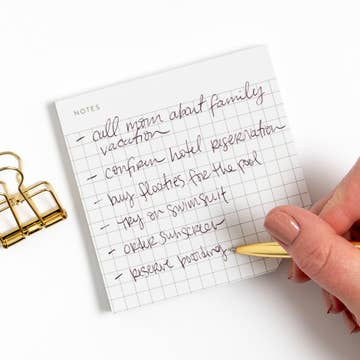 NOTES
- call mom about family
vacation
- confirm hotel reservation
- buy floaties for the pool
- try on swimsuit
- order sunscreen
- reserve